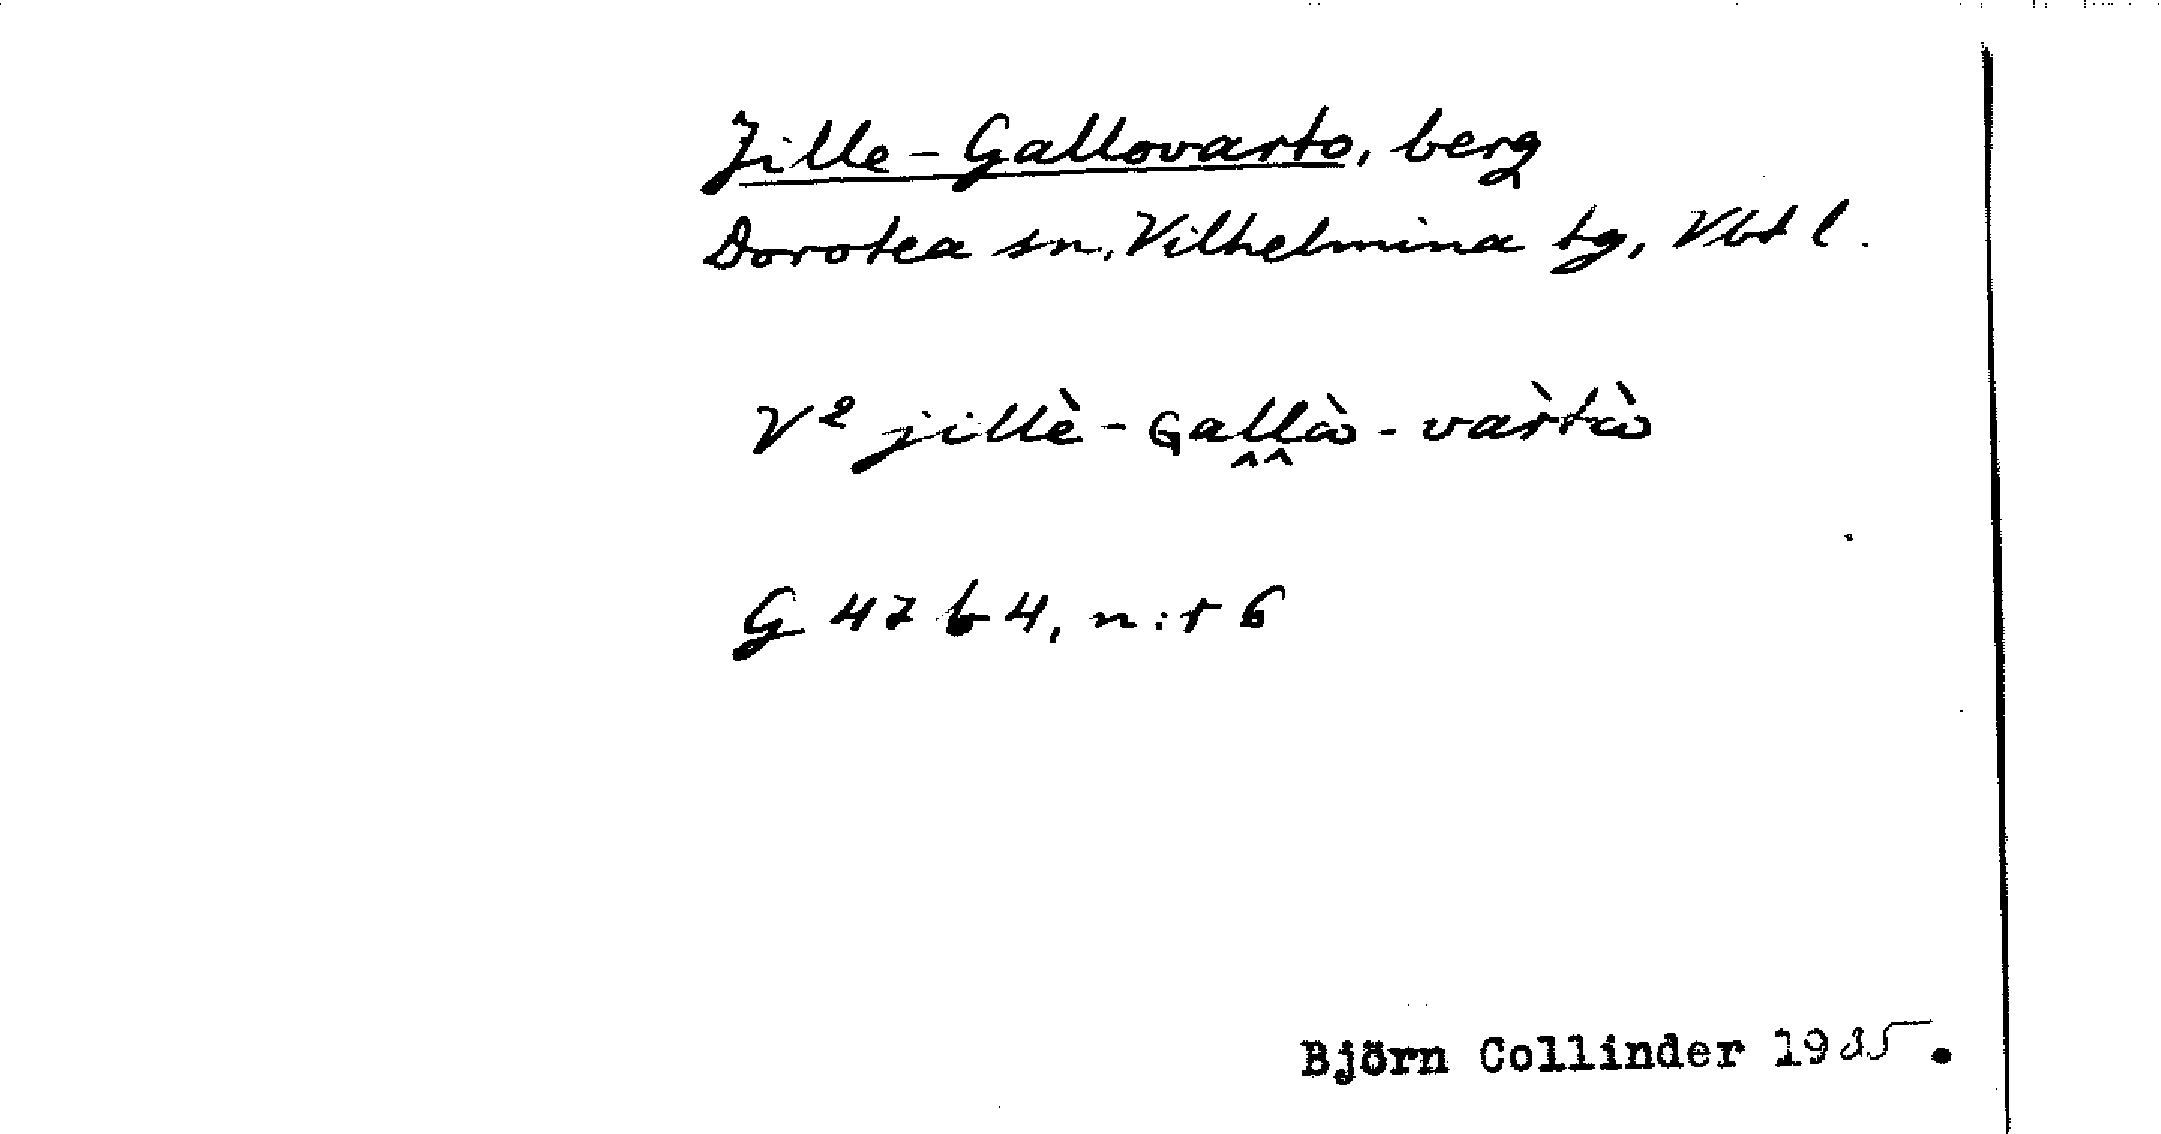 Jille-Gallovarto, berg
Dorotea sn, Vilhelmina tg, Vbt l.
V² jillè-Gaḽḽὼ-vàrtὼ
G 47 b 4, n:r 6
Björn Collinder 1935.